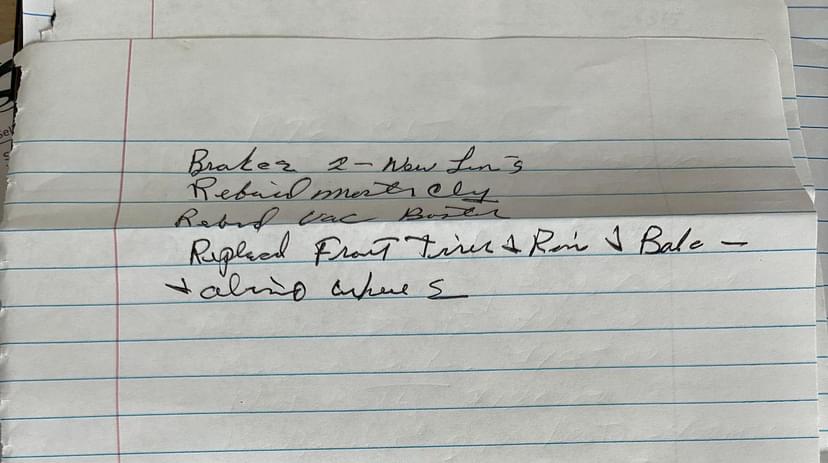 Brakes 2 - New Lin's
Rebuid master cly
Rebud Vac Boster
Replaced Front Tires + Rim + Balc -
+ wheels